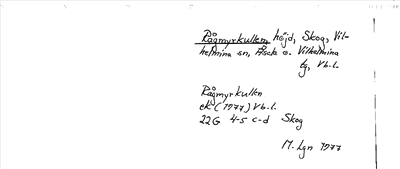 Rågmyrkullen höjd, Skog, Vil-
helmina sn, Åsele o. Vilhelmina
tg, Vb.l.
Rågmyrkulln
ek (1977) Vb.l.
22G 4-5 c-d Skog
M. Lgn 1977